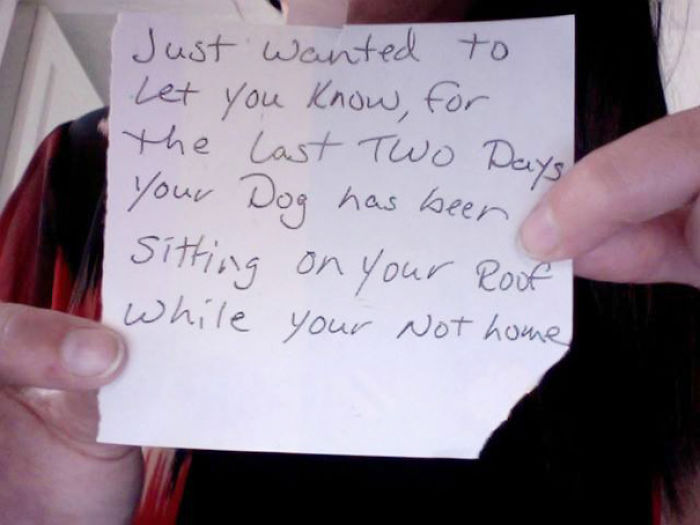 Just Wanted to
Let you Know, for
the Last Two Days
Your Dog has been
Sitting on your Roof
While your Not home